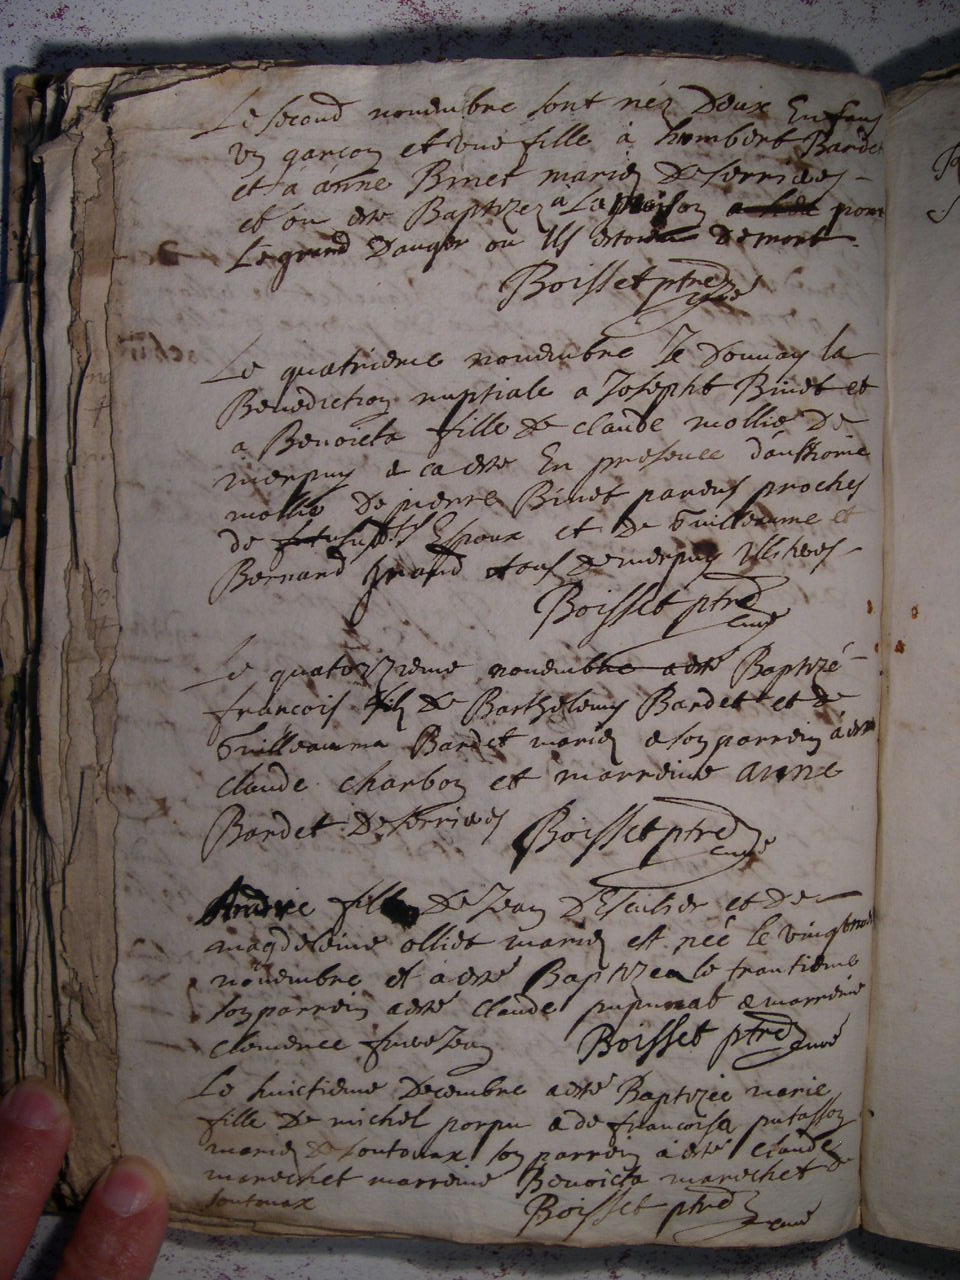 Le second novembre sont néz Deux Enfans
un garcon et une fille à humbert Bardet
et à anne Binet mariez De serrieres
et on esté Baptizez à La maison pour
Le grand Danger ou Ils estoient De mort.
Boisset ptre curé
Le quatrieme novembre Je donnay la
Benediction nuptiale a Josepht Binet et
a Benoicta fille de claude mollie De
merpuy a ca esté En presence d'anthoine
mollie De pierre Binet parens proches
de Espoux et De Guilleaume et
Bernard tous De merpuy
Boisset ptre curé
Le quatorzieme novembre a esté Baptizé
francois filz De Barthelemy Bardet et de
Guilleauma Bardet mariez a son parrein à esté
claude charbon et marreine anne
Bardet De serrieres
Boisset ptre curé
Andree fille De Jean et De
magdeleine olliet mariez est née le vingt
novembre et à esté Baptizea le trantieme
son parrein a esté claude a marreine
clemence
Boisset ptre curé
Le huictieme Decembre a esté Baptizée marie
fille De michel porpu a de francoisa putasson
mariez De soutonax son parrein à esté claude
marechet marreine Benoicta marechet de
soutonax
Boisset ptre curé